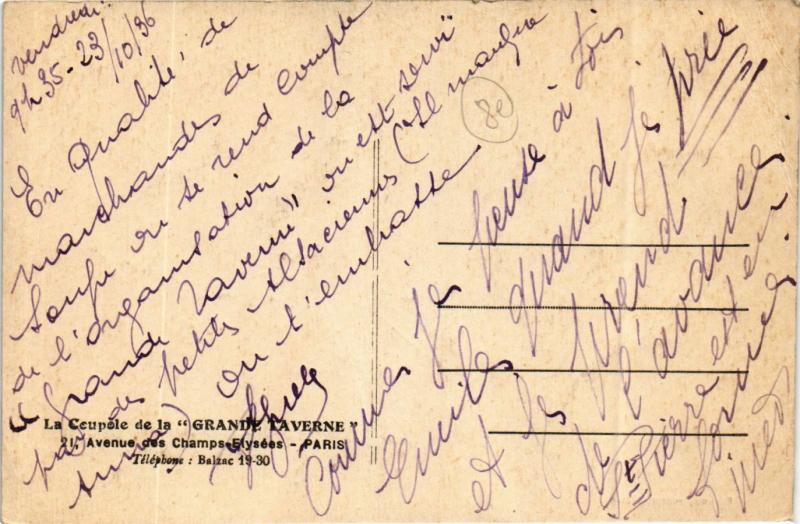 Vendredi
9h35 - 23/10/36
En qualité, de
marchandes de
soupe on se rend compte
de l'organisation de la
"Grande Taverne" on est servi
par des petits Alsaciennes ("Il manque
Anna) On t'embrasse
8e
Comme je pense à toi
Emile quand je prie
et je prend
de l'avance
St Pierre est en
La Coupole de la "GRANDE TAVERNE"
21, Avenue des Champs-Elysées - PARIS
Téléphone : Balzac 19-30